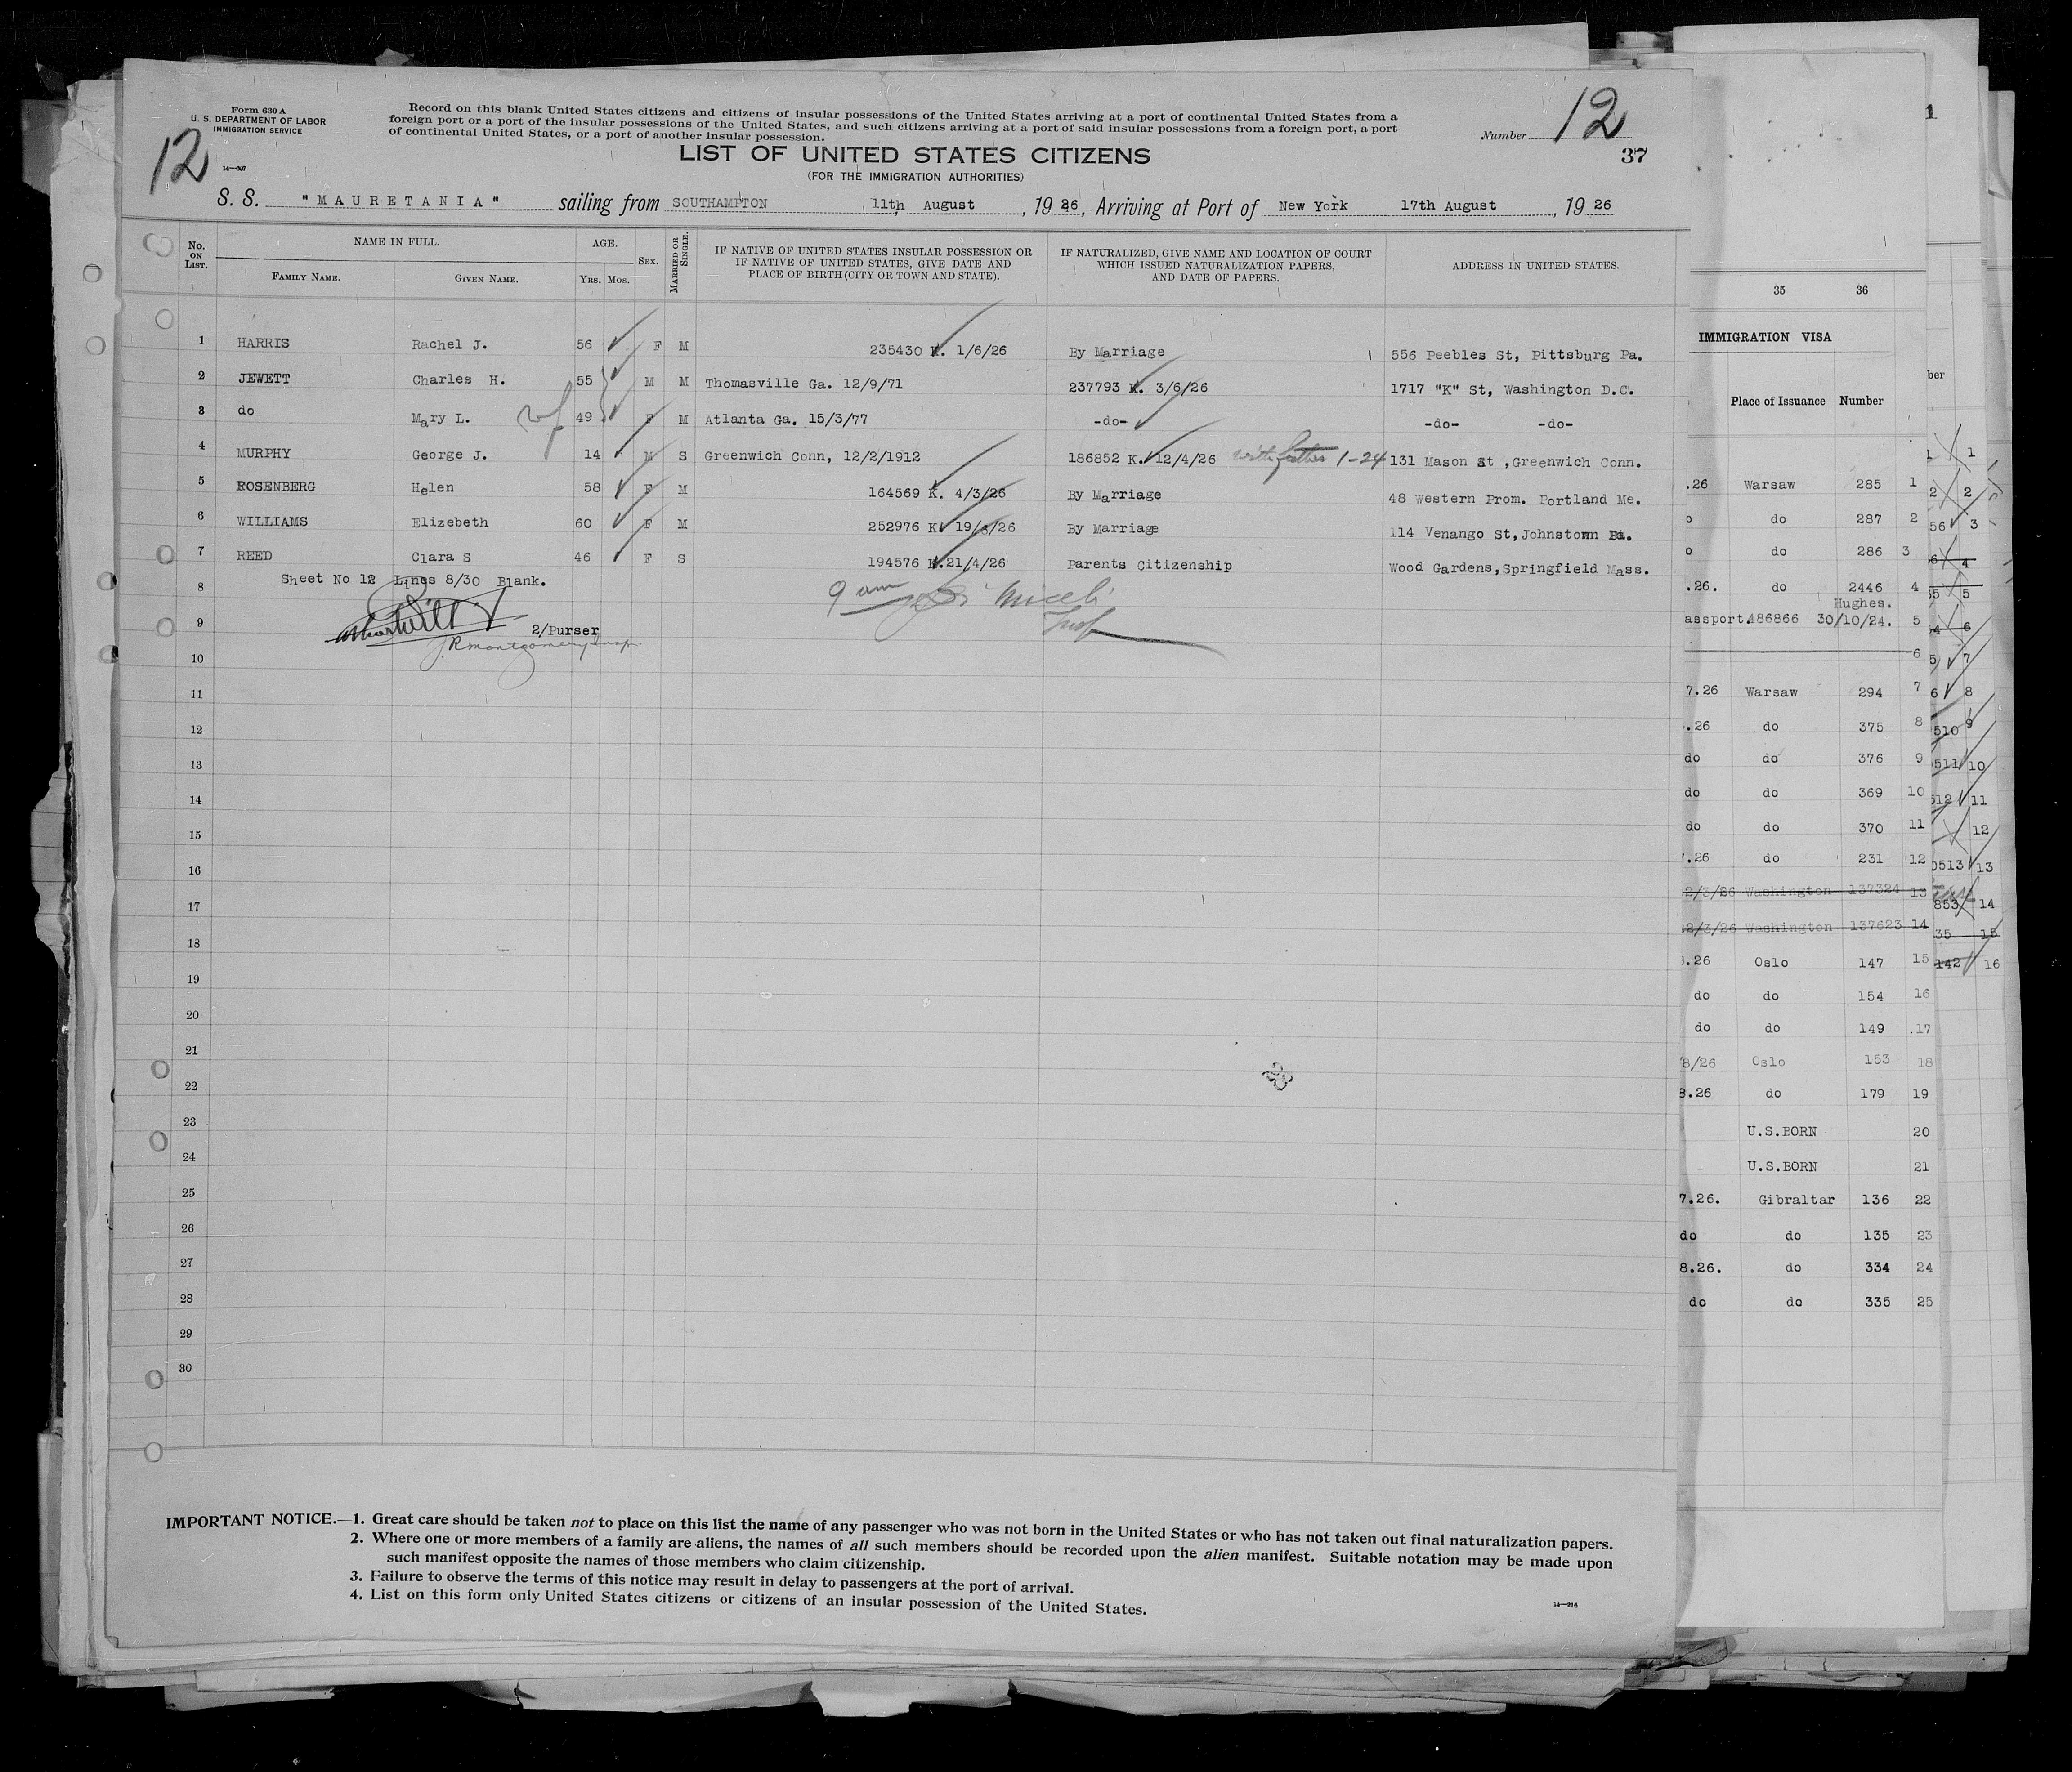 Form 630 A
U. S. DEPARTMENT OF LABOR
IMMIGRATION SERVICE
14—607
12
Record on this blank United States citizens and citizens of insular possessions of the United States arriving at a port of continental United States from a
foreign port or a port of the insular possessions of the United States, and such citizens arriving at a port of said insular possessions from a foreign port, a port
of continental United States, or a port of another insular possession.
Number 12
37
LIST OF UNITED STATES CITIZENS
(FOR THE IMMIGRATION AUTHORITIES)
S. S. "MAURETANIA" sailing from SOUTHAMPTON 11th August, 1926, Arriving at Port of New York 17th August, 1926
No. ON LIST. NAME IN FULL. FAMILY NAME. GIVEN NAME. AGE. YRS. MOS. SEX. MARRIED OR SINGLE. IF NATIVE OF UNITED STATES INSULAR POSSESSION OR IF NATIVE OF UNITED STATES, GIVE DATE AND PLACE OF BIRTH (CITY OR TOWN AND STATE). IF NATURALIZED, GIVE NAME AND LOCATION OF COURT WHICH ISSUED NATURALIZATION PAPERS, AND DATE OF PAPERS. ADDRESS IN UNITED STATES.
1 HARRIS Rachel J. 56 F M 235430 K. 1/6/26 By Marriage 556 Peebles St, Pittsburg Pa.
2 JEWETT Charles H. 55 M M Thomasville Ga. 12/9/71 237793 K. 3/6/26 1717 "K" St, Washington D.C.
3 do Mary L. wf 49 F M Atlanta Ga. 15/3/77 -do- -do- -do-
4 MURPHY George J. 14 M S Greenwich Conn, 12/2/1912 186852 K. 12/4/26 with father 1-24 131 Mason St ,Greenwich Conn.
5 ROSENBERG Helen 58 F M 164569 K. 4/3/26 By Marriage 48 Western Prom. Portland Me.
6 WILLIAMS Elizebeth 60 F M 252976 K. 19/ /26 By Marriage 114 Venango St,Johnstown Pa.
7 REED Clara S 46 F S 194576 K.21/4/26 Parents Citizenship Wood Gardens,Springfield Mass.
Sheet No 12 Lines 8/30 Blank.
8 9 am Miceli
9 2/Purser Insp
J.R. Montgomery Insp
10
11
12
13
14
15
16
17
18
19
20
21
22
23
24
25
26
27
28
29
30
IMPORTANT NOTICE.—1. Great care should be taken not to place on this list the name of any passenger who was not born in the United States or who has not taken out final naturalization papers.
2. Where one or more members of a family are aliens, the names of all such members should be recorded upon the alien manifest. Suitable notation may be made upon
such manifest opposite the names of those members who claim citizenship.
3. Failure to observe the terms of this notice may result in delay to passengers at the port of arrival.
4. List on this form only United States citizens or citizens of an insular possession of the United States.
14—216
35 36
IMMIGRATION VISA
Place of Issuance Number
.26 Warsaw 285 1
o do 287 2
o do 286 3
.26. do 2446 4
Hughes.
assport.486866 30/10/24. 5
6
7.26 Warsaw 294 7
.26 do 375 8
do do 376 9
do do 369 10
do do 370 11
.26 do 231 12
2/3/26 Washington 137324 13
2/3/26 Washington 137623 14
.26 Oslo 147 15
do do 154 16
do do 149 .17
8/26 Oslo 153 18
8.26 do 179 19
U.S.BORN 20
U.S.BORN 21
7.26. Gibraltar 136 22
do do 135 23
8.26. do 334 24
do do 335 25
1
ber
1
2 2
56 3
4
5
6
5 7
6 8
510 9
511 10
512 11
12
0513 13
853 14
35 15
142 16